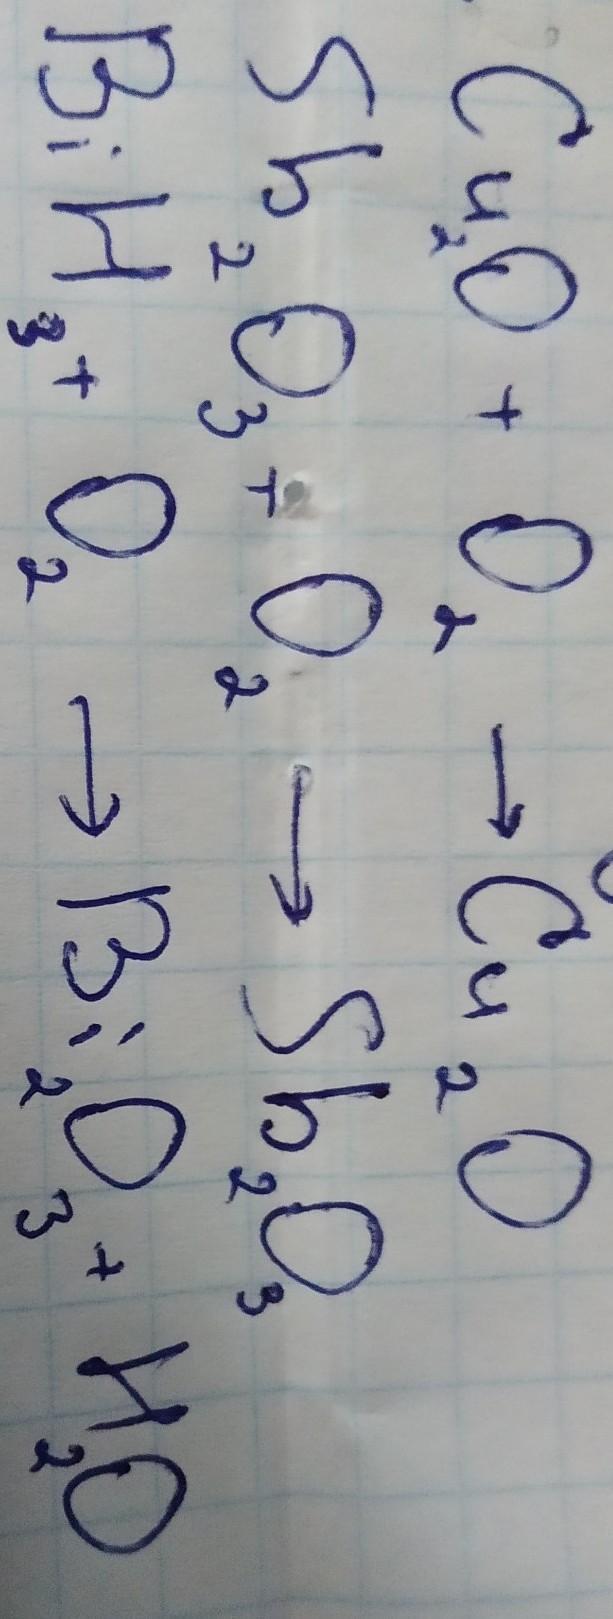 Cu₂O + O₂ → Cu₂O
Sb₂O₃ + O₂ → Sb₂O₃
BiH₃ + O₂ → Bi₂O₃ + H₂O